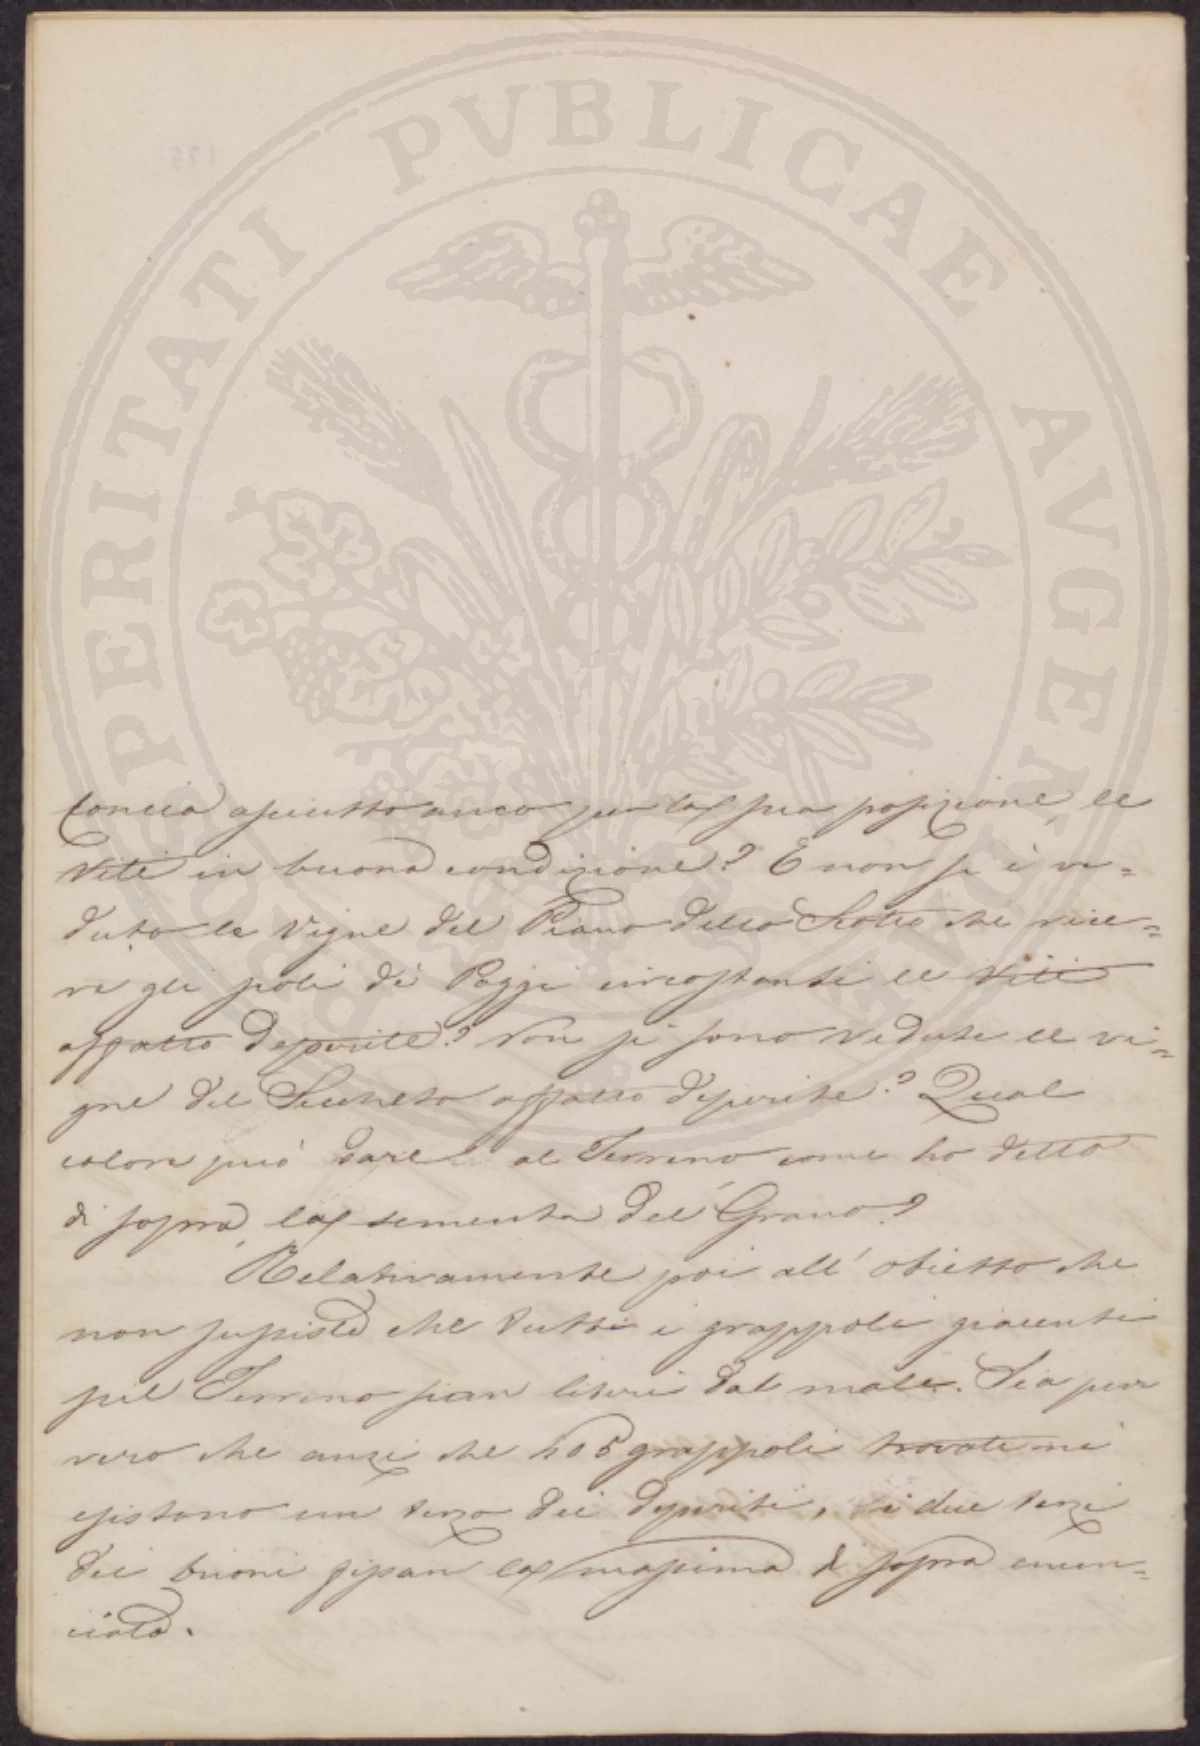 PROSPERITATI PVBLICAE AVGENDAE
175
asciutto anco per la sua posizione, le
Viti in buona condizione? E non si è ve=
duto le Vigne del Piano dello Scotto che rice=
ve gli scoli di Poggi circostanti le Viti
affatto deperite? Non si sono vedute le vi=
gne del affatto deperite? Qual
calore può dare al Terreno come ho detto
di sopra, la sementa del Grano?
Relativamente poi all' obietto che
non sussiste che tutti i grappoli giacenti
sul Terreno sian liberi dal male. Sia pur
vero che anzi che grappoli trovati ne
esistono un terzo dei deperiti, i due terzi
dei buoni fissan la massima di sopra enun=
ciata.